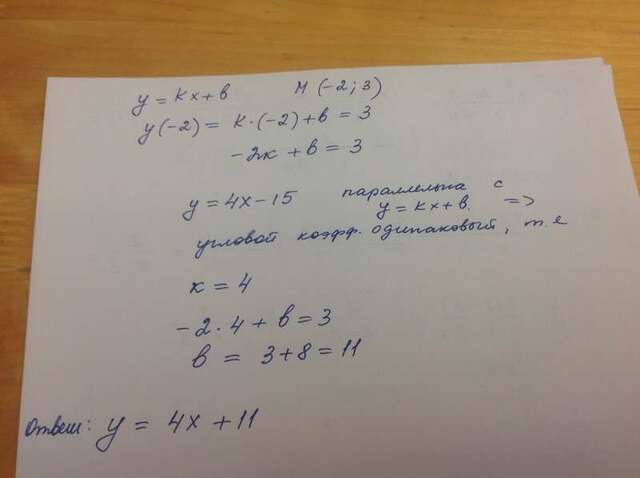 y = kx + b M (-2; 3)
y(-2) = k·(-2) + b = 3
-2k + b = 3
y = 4x - 15 параллельна с
y = kx + b. =>
угловой коэфф. одинаковый, т.е
k = 4
-2·4 + b = 3
b = 3+8 = 11
Ответ: y = 4x + 11